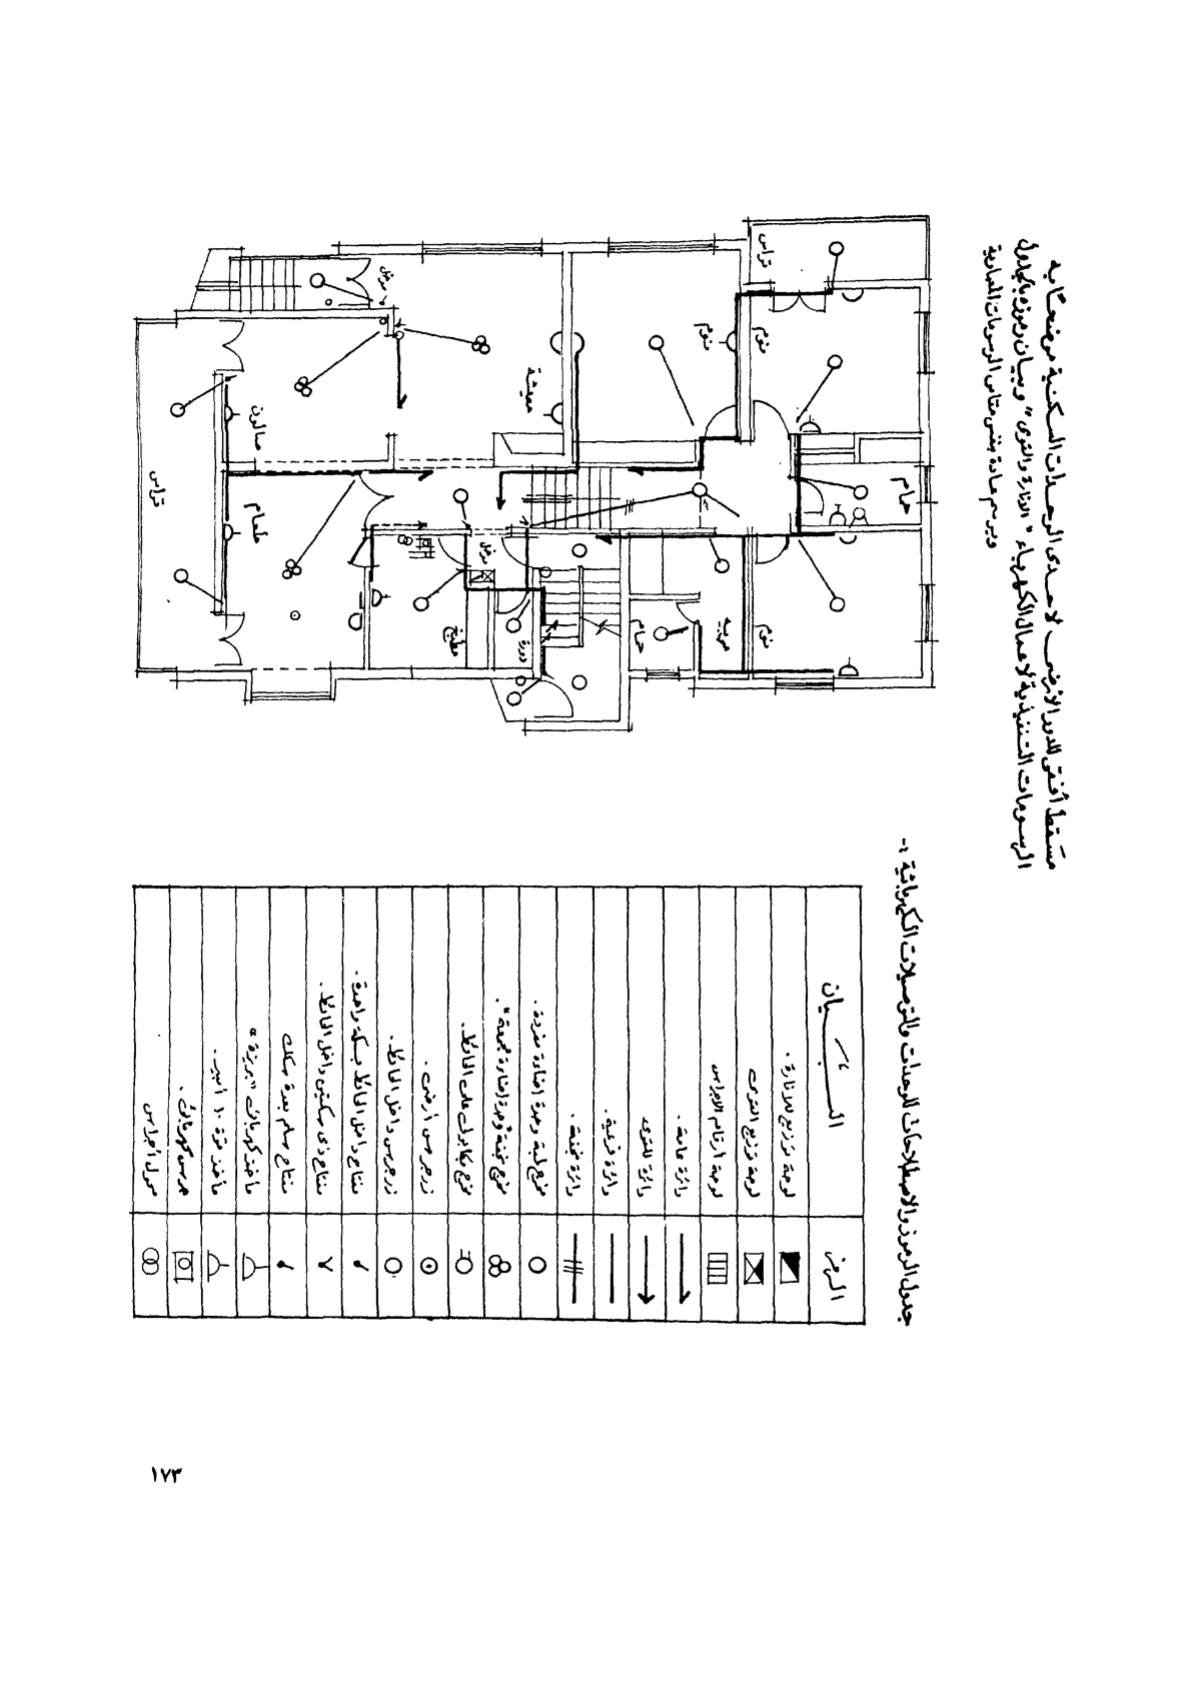 مسقط أفقى للدور الأرضى لاحدى الوحدات السكنية موضحاً به
الرسومات التنفيذية لأعمال الكهرباء "الانارة والقوى" وبيان رموزه بالجدول
ويرسم عادة بنفس مقاس الرسومات المعمارية
تراس
نوم
نوم
حمام
مدخل
معيشة
صالون
تراس
طعام
مدخل
مطبخ
دورة
حمام
نوم
جدول الرموز والاصطلاحات للوحدات والتوصيلات الكهربائية :-
البيان
الرمز
لوحة توزيع للانارة .
لوحة توزيع القوى
لوحة أرقام الاجراس
دائرة عامة .
دائرة للقوى
دائرة فرعية .
دائرة مخرج لمبة وحدة اضاءة مفردة .
مخرج بكابولى على الحائط .
زر جرس أرضى .
زر جرس داخل الحائط .
مفتاح داخل الحائط بسكة واحدة .
مفتاح ذى سكتين داخل الحائط .
مفتاح سلم بعدة سكك
مأخذ كهربائى "بريزة"
مأخذ قوة ١٠ أمبير .
جرس كهربائى .
محول أجراس
١٧٣